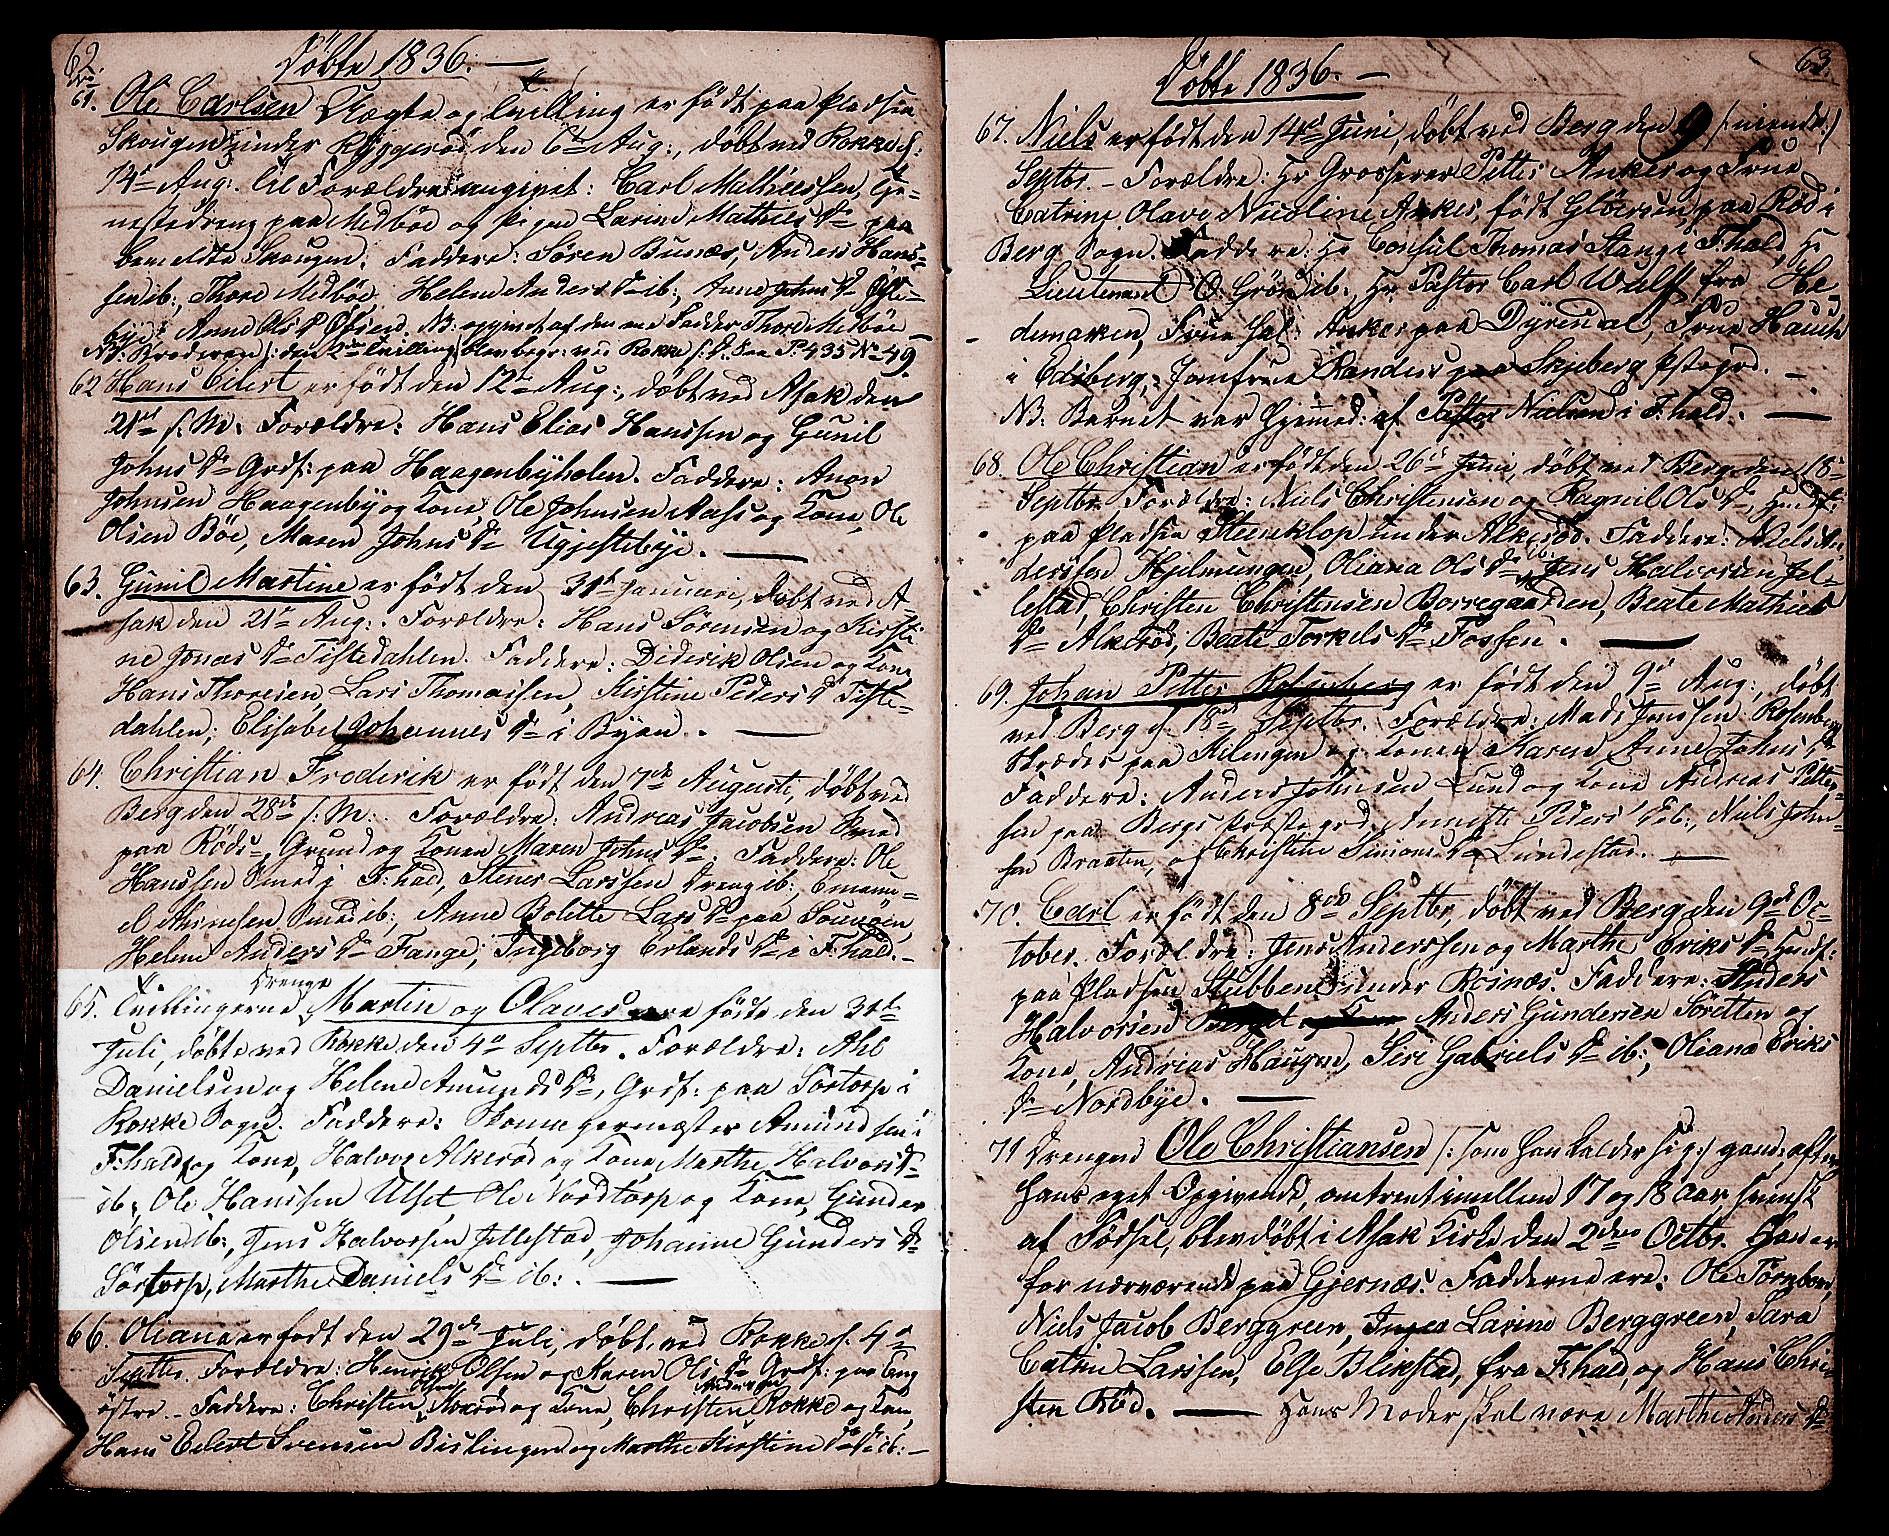 62.
Döbte 1836. —
No
61. Ole Carlsen Uægte og Tvilling er födt paa Pladsen
Skougen under Byggeröd den 6te Aug:, döbt ved Rokke d:
14de Aug: Til Forældre angivet: Carl Mathiessen, Tje-
nestedreng paa Medböe og Pigen Larine Mathies Dr paa
bemeldte Skougen. Faddere: Sören Busnæs, Anders Hans-
sen ib:, Thore Medböe, Helene Anders Dr ib:, Anne Johns Dr
Anne Ols D NB: opgivet af den ene Fadder Thore Medböe —
NB: Broderen /: den 2den Tvilling blev begr: ved Rokke s. D. See P: 435 No 49
62 Hans Eilert er födt den 12te Aug:, döbt ved Asak den
21de s. M: Forældre: Hans Elias Hanssen og Gunil
Johns Dr Grdf: paa Haagenbyholen. Faddere: Anon
Johnsen Haagenby og Kone, Ole Johnsen Aase og Kone, Ole
Olsen Böe, Maren Johns Dr —
63. Gunil Martine er födt den 31te Januari, döbt ved A-
sak den 21de Aug: Forældre: Hans Sörensen og Kirsti-
ne Jonas Dr Tistedahlen. Faddere: Diderik Olsen og Kone
Hans Thoresen, Lars Thomassen, Kirstine Peders D Tiste-
dahlen; Elisabet Johannes Dr i Byen. —
64. Christian Frederik er födt den 7de Augusti, döbt ved
Berg den 28de s. M: Forældre: Andreas Jacobsen Smed
paa Röds-Grund og Konen Maren Johns Dr. Faddere: Ole
Hanssen Smed i F:hald, Stener Larssen Dreng ib:, Emanu-
el Smed ib:, Anne Bolette Lars Dr paa
Helene Anders Dr Fange; Ingeborg Erlands Dr i F:hald. —
Drenge
65. Tvillingerne Martin og Olaves ere födte den 31te
Juli, döbte ved Rokke den 4de Septbr. Forældre: Abel
Danielsen og Helene Amunds Dr, Grdf: paa Sörtorp i
Rokke Sogn. Faddere: Amundsen i
F:hald og Kone, Halvor Alkeröd og Kone, Marthe Halvors D
ib:, Ole Hanssen Ulset, Ole Nordtorp og Kone, Gunder
Olsen ib:, Jens Halvorsen Jellestad, Johanne Gunders D
Sörtorp, Marthe Daniels Dr ib:. —
66. Oliana er födt den 29de Juli, döbt ved Rokke d. 4de
Septbr. Forældre: Henrich Olsen og Karen Ols Dr Grdf: paa Eng
östre. — Faddere: Christen Alkeröd og Kone, Christen Rokke og Kone,
Hans Eilert Svensen Bislingen og Marthe Kirstine ib: —
63.
Döbte 1836. —
67. Niels er födt den 14de Juni, döbt ved Berg den 9 /: niende :/
Septbr. — Forældre: Hr Grosserer Petter Anker og Frue
Catrine Olave Nicoline Anker, födt Glöersen, paa Röd i
Berg Sogn. Faddere: Hr Consul Thomas Stang i F:hald, Hr
Lieutenant O. Grön ib:, Hr Pastor Carl Wulff fra He-
demarken, Frue Anker paa Dyrendal, Frue Hauch
i Edsberg, Jomfrue Randers paa Skjeberg Pstegrd. —
NB: Barnet var hjemmed: af Pastor Nielsen i F:hald. —
68. Ole Christian er födt den 26de Juni, döbt ved Berg den 18de
Septbr. Forældre: Niels Christensen og Ragnil Ols Dr, Husf:
paa Pladsen Steenklop under Alkeröd. Faddere: Niels An-
derssen Hjelmungen, Oliana Ols Dr Jens Halvorsen Jel-
lestad, Christen Christensen Borregaarden, Beate Mathies
Dr Alkeröd, Beate Torkels Dr Fossen. —
69. Johan Petter Rosenberg er födt den 9de Aug:, döbt
ved Berg d. 18de Septbr. Forældre: Mads Jenssen Rosenberg
Skræder paa Kilengen og Konen Karen Anne Johns Dr
Faddere: Anders Johnsen Lund og Kone Andreas Petter-
sen paa Bergs Præstegrd, Annette Peders D ib:, Niels John-
sen Braaten, og Christine Simons Dr Lundestad. —
70. Carl er födt den 8de Septbr, döbt ved Berg den 9de Oc-
tober. Forældre: Jens Anderssen og Marthe Eriks Dr Husf:
paa Pladsen Stubben under Rosnæs. Faddere: Anders
Halvorsen Berget Anders Gundersen Söretten og
Kone, Andreas Haugen, Siri Gabriels Dr ib:; Oliana Eriks
Dr Nordbye. —
71 Drengen Ole Christiansen /: som han kalder sig :/ gand: efter
hans eget Opgivende, omtrent imellem 17 og 18 aar, svensk
af Födsel, blev döbt i Asak Kirke den 2den Octbr. Han er
for nærværende paa Gjernæs. Fadderne ere: Ole Törnberg,
Niels Jacob Berggreen, Inger Larine Berggreen, Sara
Catrine Larssen, Else Blikstad, fra F:hald, og Hans Chri-
sten Röd. — Hans Moder skal være Marthe Anders Dr